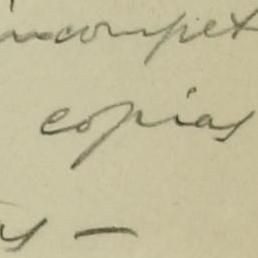 incompet
copias
s —